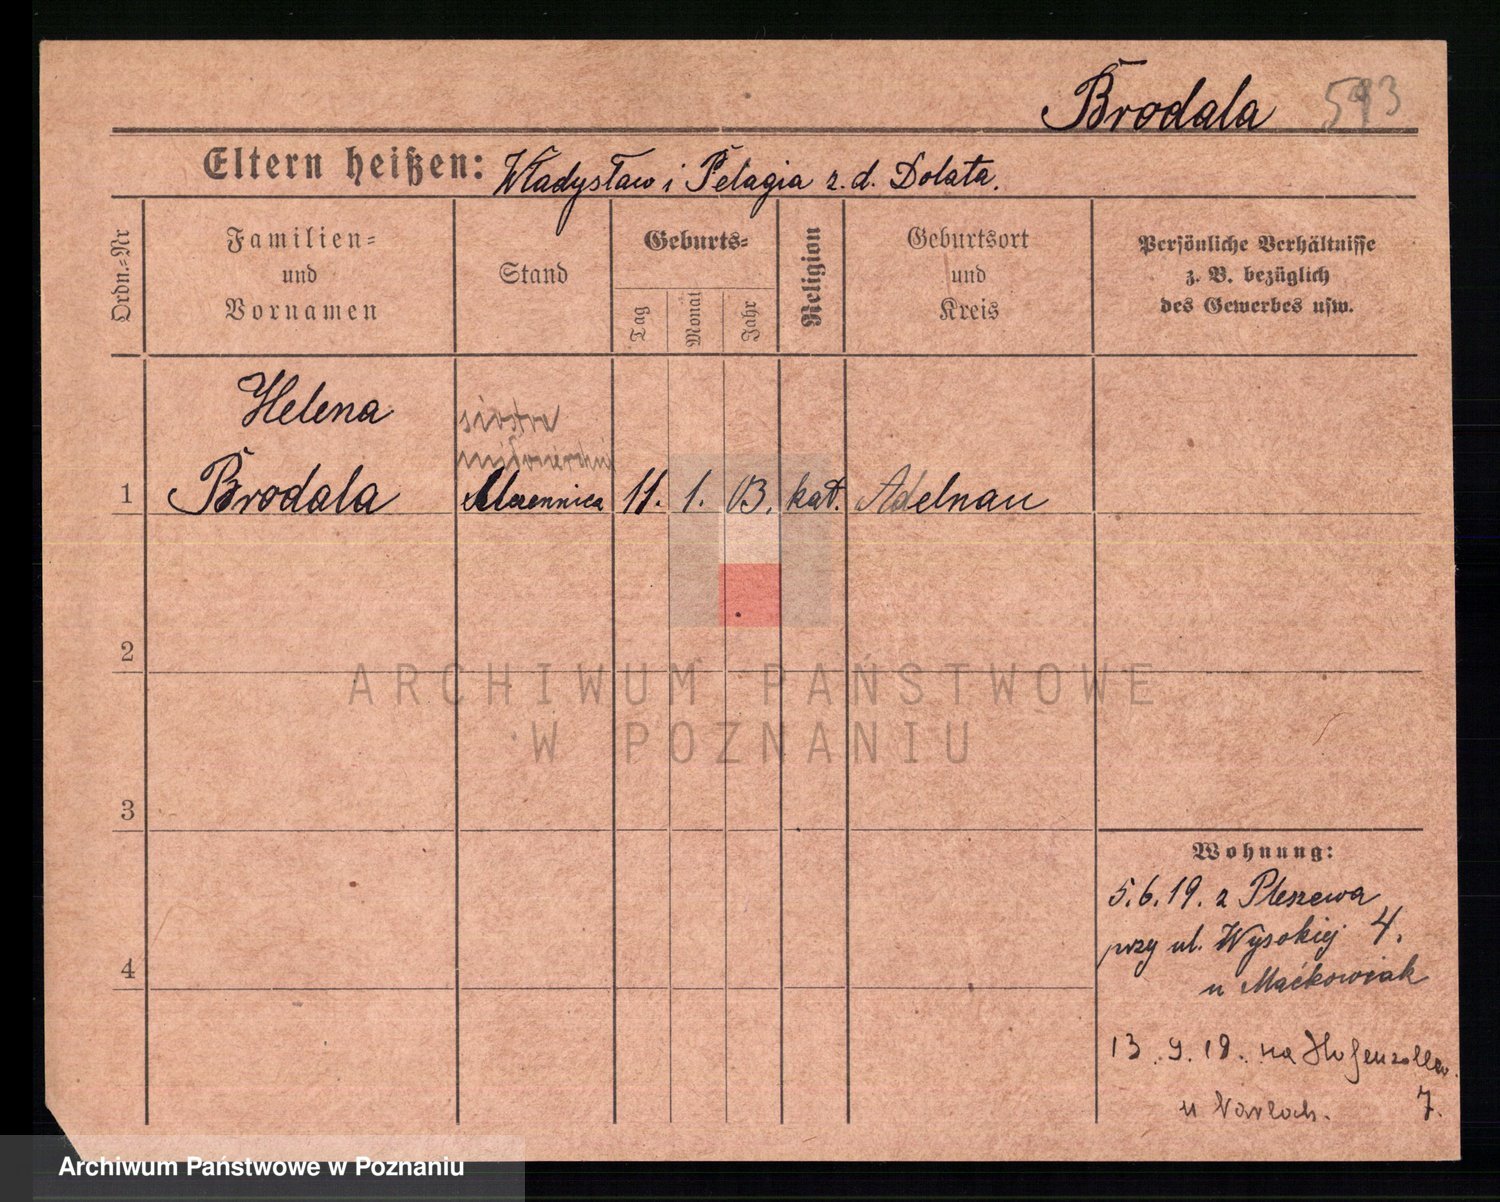 Brodala 593
Eltern heißen: Władysław i Pelagia z. d. Dolata.
Ordn.-Nr
Familien-
und
Vornamen
Stand
Geburts-
Tag
Monat
Jahr
Religion
Geburtsort
und
Kreis
Persönliche Verhältnisse
z. B. bezüglich
des Gewerbes usw.
Helena
siostra
1 Brodala uczennica 11. 1. 03. kat. Adelnau
2
ARCHIWUM PAŃSTWOWE
W POZNANIU
3
Wohnung:
5.6.19. z Pleszewa
przy ul. Wysokiej 4.
4
u Maćkowiak
13.9.19. na Hohenzoller.
u 7.
Archiwum Państwowe w Poznaniu